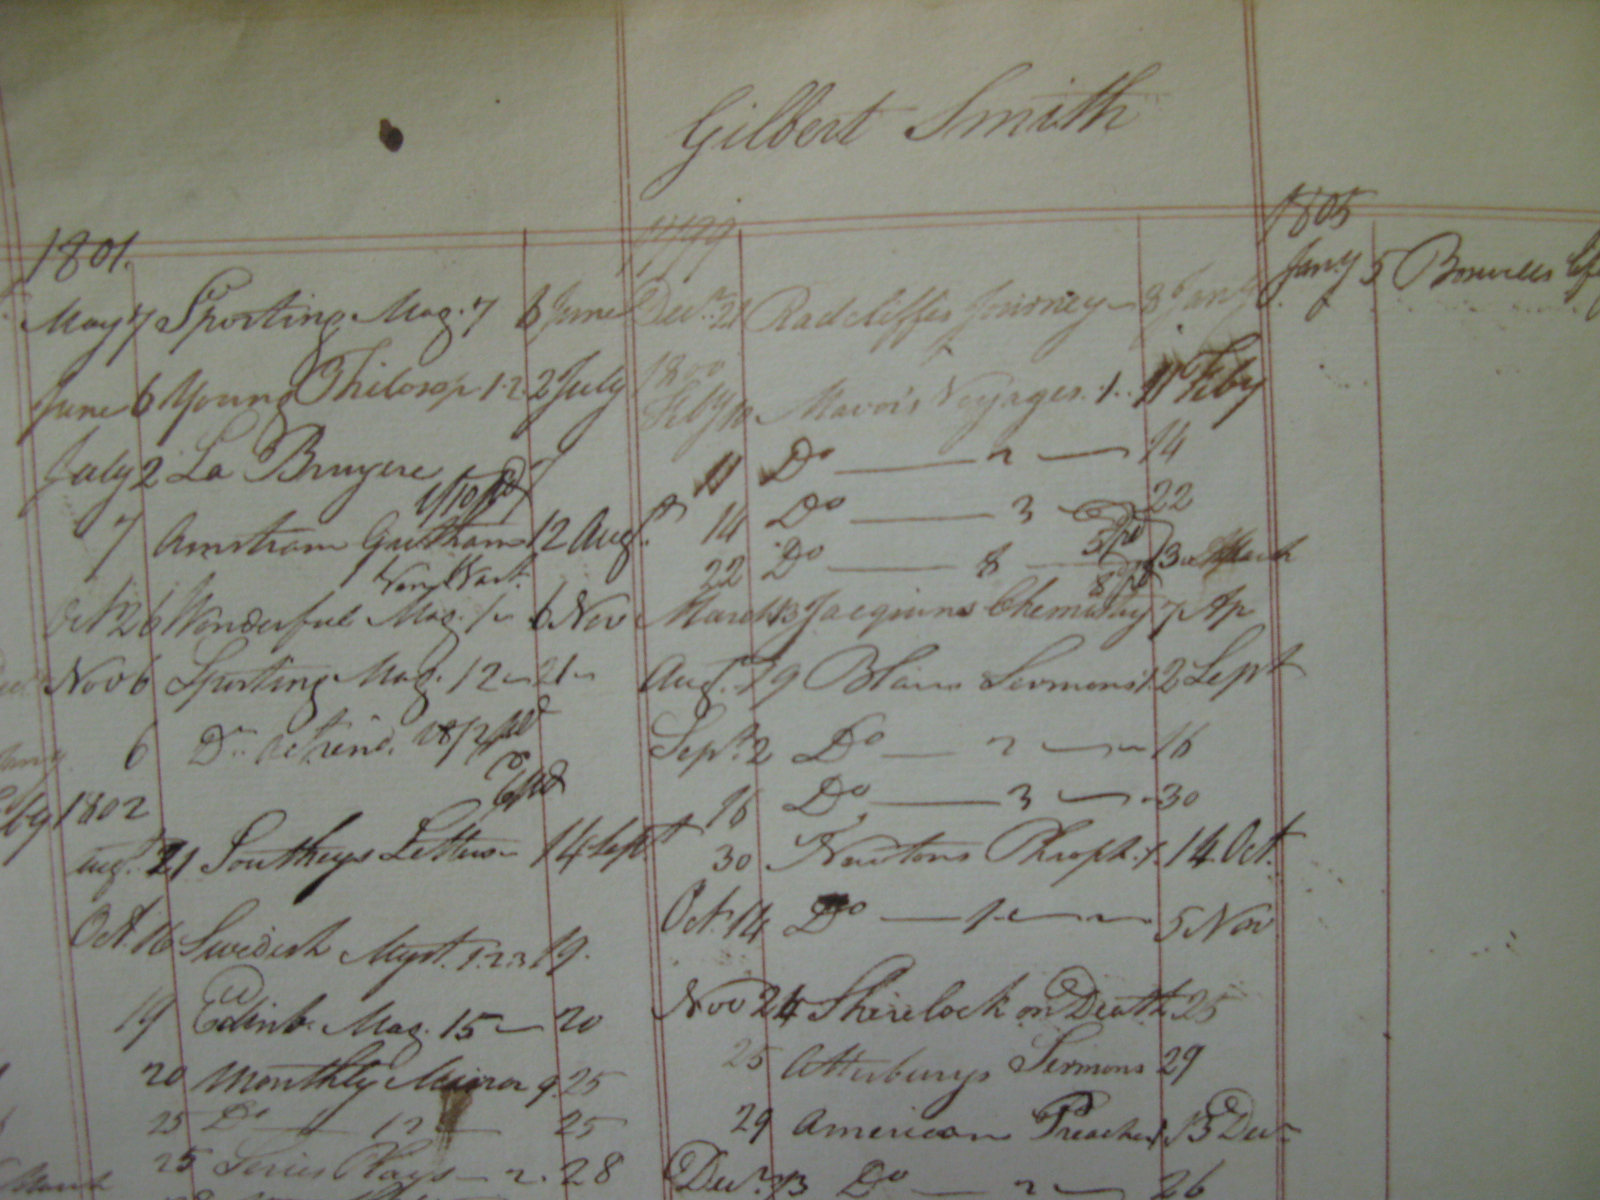 Gilbert Smith
1801.
May 7 Sporting Mag. 7 6 June
June 6 Young Philosop 1.2. 2 July
July 2 La Bruyere 7
7 12 Augt.
Oct 26 Wonderful Mag. 6 Nov
Nov 6 Sporting Mag. 12 21
6 Do
1802
Augt. 21 Southeys Letters 14 Sept
Oct. 16 Swedish Myst. 1.2.3 19.
19 Edinb. Mag. 15 20
20 Monthly Mirror 9. 25
25 Do 12 25
25 Plays 2. 28
1799
Decr. 21 Radcliffes Journey 8 Jany
1800
Feby 10 Mavors Voyages. 1. 11 Feby
11 Do 2 14
14 Do 3 22
22 Do 8 13 March
March 13 Jacquins Chemistry 7 Ap
Augt. 19 Blairs Sermons 1. 2 Sept
Sept. 2 Do 2 16
16 Do 3 30
30 Newtons Proph. 1. 14 Oct.
Oct. 14 Do 5 Nov
Nov 24 Sherelock on Death 25
25 Atterburys Sermons 29
29 American Preacher 1 13 Decr
Decr. 13 Do 2 26
1805
Jany 5 Boswells life